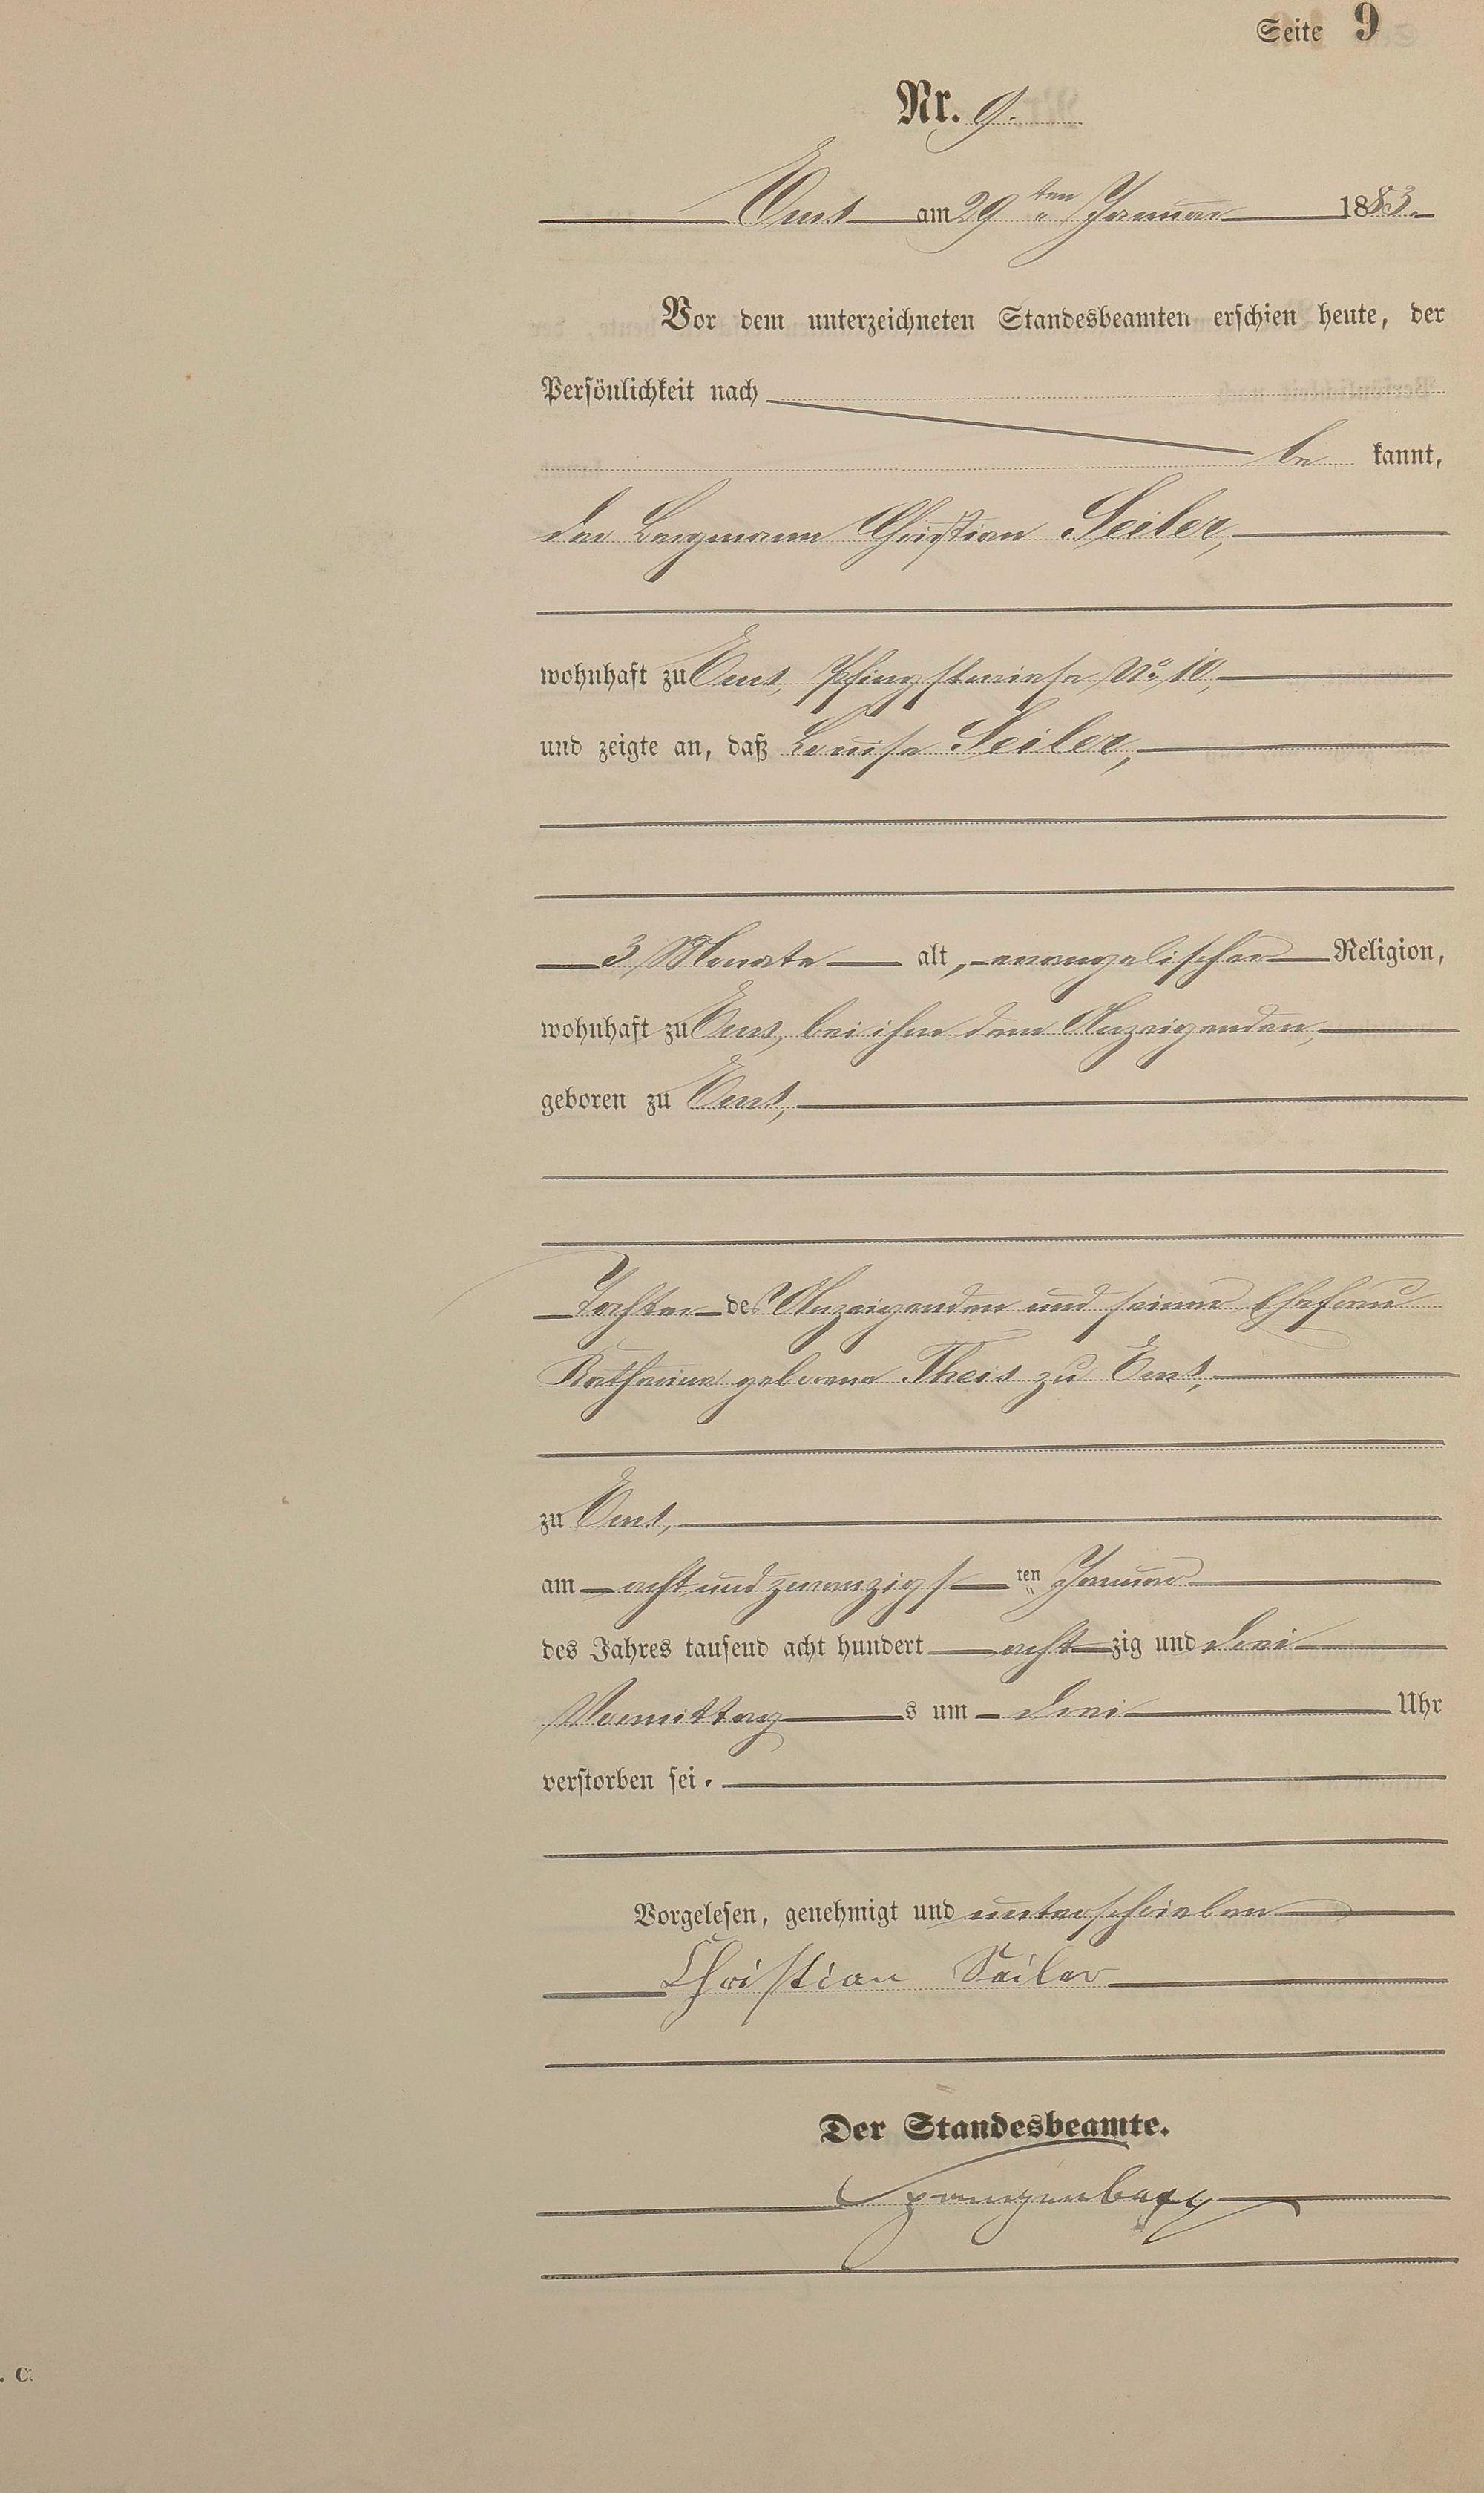 Seite 9
Nr. 9.
Ems am 29ten Januar 1883.
Vor dem unterzeichneten Standesbeamten erschien heute, der
Persönlichkeit nach
be kannt,
der Bergmann Christian Seiler,
wohnhaft zu Ems, Pfingstwiese No 10,
und zeigte an, daß Louise Seiler,
3 Monate alt, evangelischer Religion,
wohnhaft zu Ems, bei ihm dem Anzeigenden,
geboren zu Ems,
Tochter des Anzeigenden und seiner Ehefrau
Katharina geborene Theis zu Ems,
zu Ems,
am achtundzwanzigsten Januar
des Jahres tausend acht hundert achtzig und drei
Vormittags um drei Uhr
verstorben sei.
Vorgelesen, genehmigt und unterschrieben
Christian Seiler
Der Standesbeamte.
Spangenberg
. C.